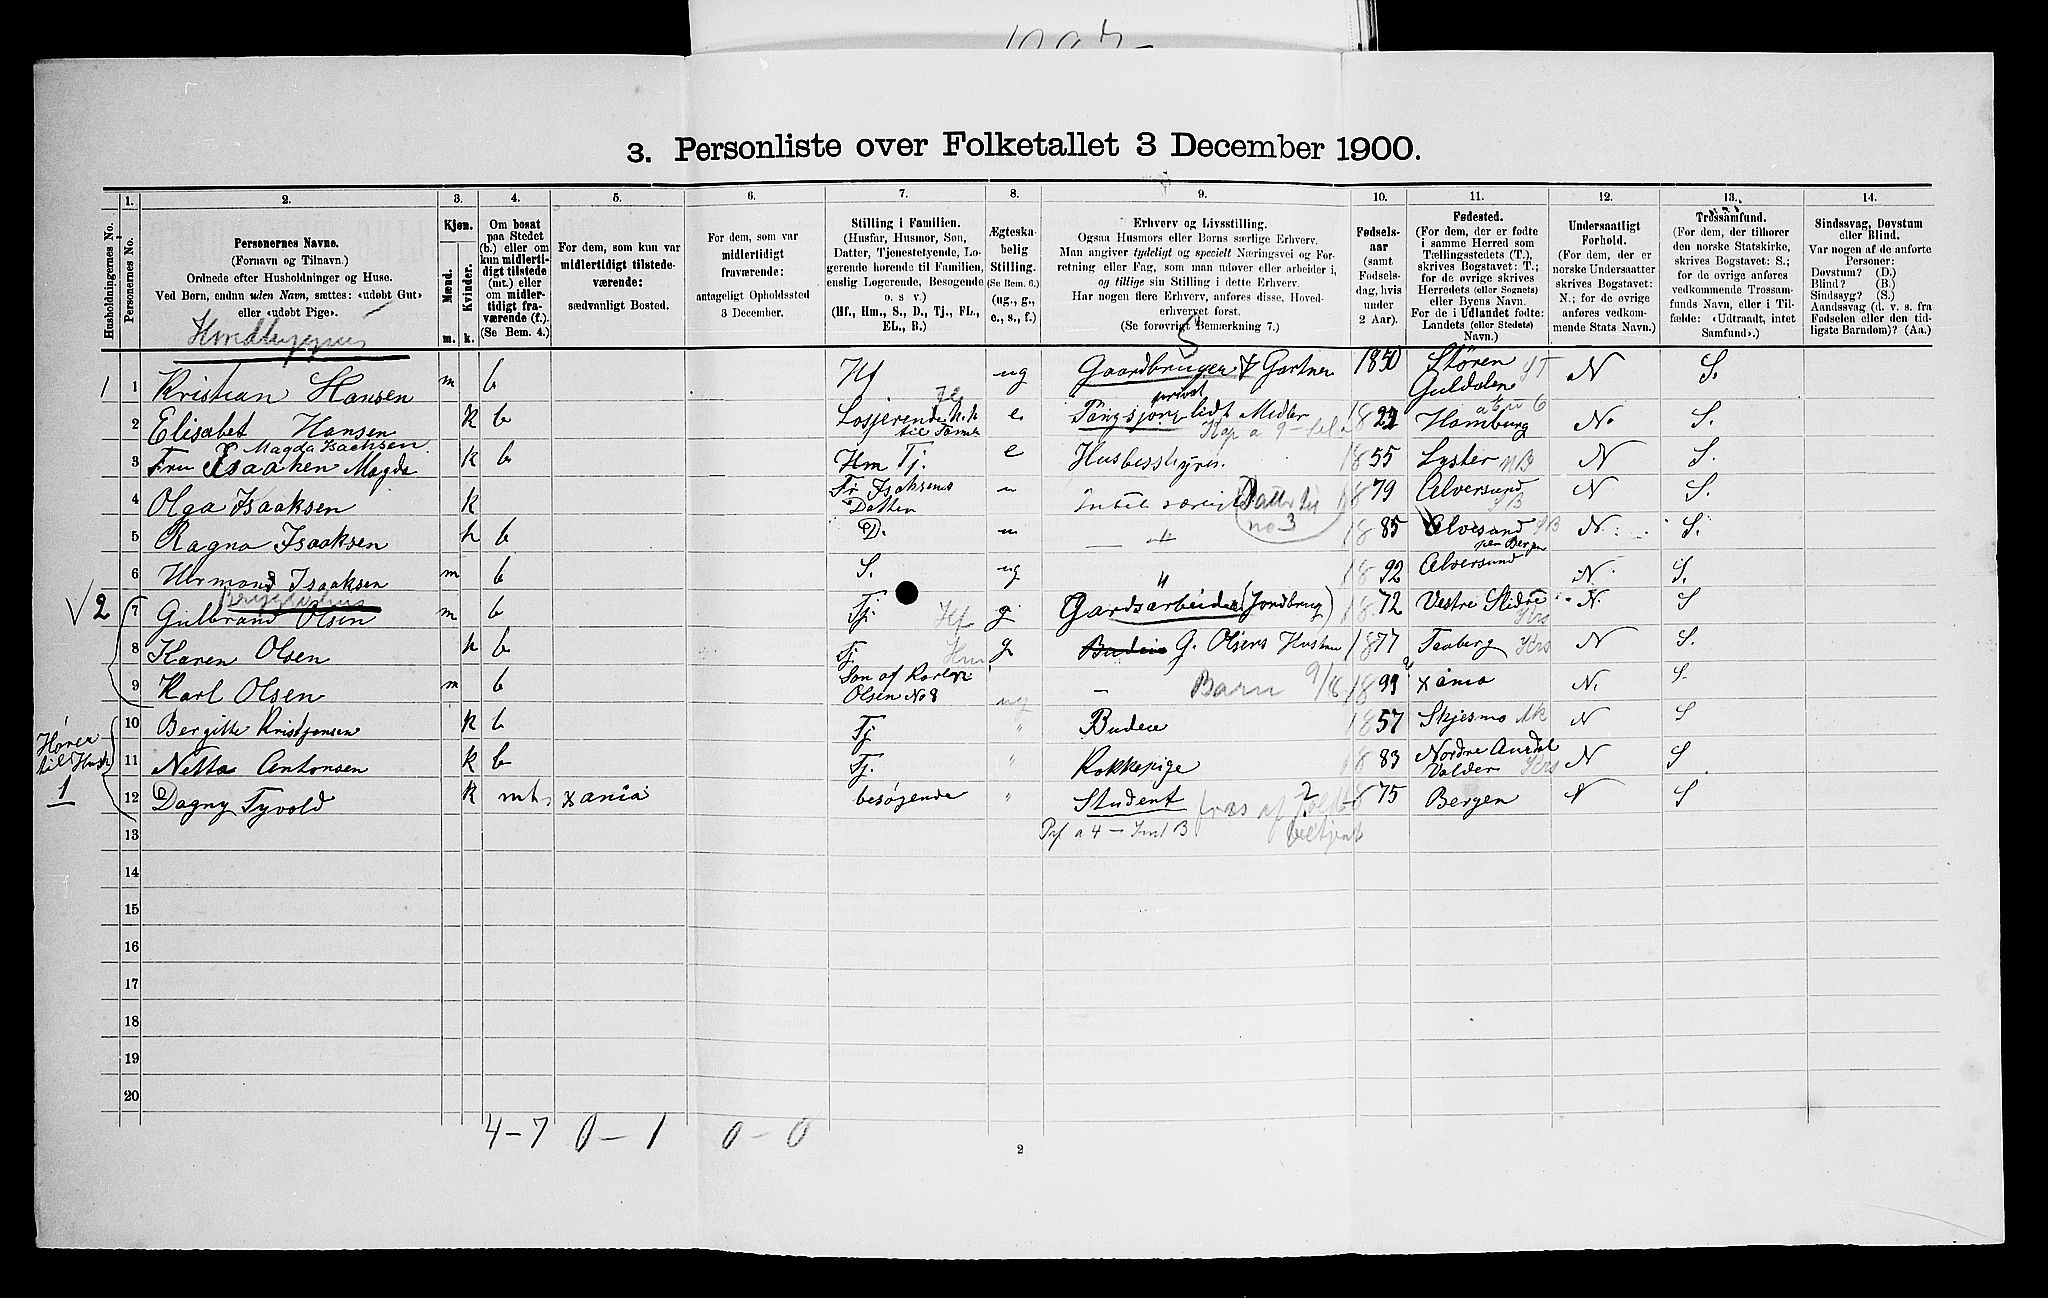 3. Personliste over Folketallet 3 December 1900.
Husholdningernes No.
1.
Personernes No.
2.
Personernes Navne.
(Fornavn og Tilnavn.)
Ordnede efter Husholdninger og Huse.
Ved Børn, endnu uden Navn, sættes: «udøbt Gut»
eller «udøbt Pige».
3.
Kjøn.
Mænd.
Kvinder.
m.
k.
4.
Om bosat
paa Stedet
(b.) eller om
kun midlerti-
digt tilstede
(mt.) eller
om midler-
tidigt fra-
værende (f.).
(Se Bem. 4.)
5.
For dem, som kun var
midlertidigt tilstede-
værende:
sædvanligt Bosted.
6.
For dem, som var
midlertidigt
fraværende:
antageligt Opholdssted
3 December.
7.
Stilling i Familien.
(Husfar, Husmor, Søn,
Datter, Tjenestetyende, Lo-
gerende hørende til Familien,
enslig Logerende, Besøgende
o. s v.)
(Hf., Hm., S., D., Tj., FL.,
EL., B.)
8.
Ægteska-
belig
Stilling.
(Se Bem. 6.)
(ug., g.,
e., s., f.)
9.
Erhverv og Livsstilling.
Ogsaa Husmors eller Børns særlige Erhverv.
Man angiver tydeligt og specielt Næringsvei og For-
retning eller Fag, som man udøver eller arbeider i,
og tillige sin Stilling i dette Erhverv.
Har nogen flere Erhverv, anføres disse, Hoved-
erhvervet først.
(Se forøvrigt Bemærkning 7.)
10.
Fødsels-
aar
(samt
Fødsels-
dag, hvis
under
2 Aar).
11.
Fødested.
(For dem, der er fødte
i samme Herred som
Tællingsstedets (T.),
skrives Bogstavet: T.;
for de øvrige skrives
Herredets (eller Sognets)
eller Byens Navn.
For de i Udlandet fødte:
Landets (eller Stedets)
Navn.)
12.
Undersaatligt
Forhold.
(For dem, der er
norske Undersaatter
skrives Bogstavet:
N.; for de øvrige
anføres vedkom-
mende Stats Navn.)
13.
Trossamfund.
(For dem, der tilhører
den norske Statskirke,
skrives Bogstavet: S.;
for de øvrige anføres
vedkommende Trossam-
funds Navn, eller i Til-
fælde: «Udtraadt, intet
Samfund».)
14.
Sindssvag, Døvstum
eller Blind.
Var nogen af de anførte
Personer:
Døvstum? (D.)
Blind? (B.)
Sindssyg? (S.)
Aandssvag (d. v. s. fra
Fødselen eller den tid-
ligste Barndom)? (Aa.)
1 1 Kristian Hansen m b Hf ug Gaardbruger & Gartner 1850 Stören Guldalen N S.
2 Elisabet Hansen k b Losjerende e privat 1822 Hamburg N. S.
Magda Isachsen
3 Fru Isaaken Magda k b Hm Tj. e Husbestyrer. 1855 Lyster N S.
4 Olga Isaaksen k Fr Isaksens Datter Intet særligt Datter til no 3 1879 Alversund N S.
5 Ragna Isaaksen k b D. 1885 Alversund per Bergen N. S.
6 Herman Isaaksen m b S. ug " 1892 Alversund N. S.
2 Bryggerhus
7 Gulbrand Olsen m b Tj. Hf g Gardsarbeider (Jordbrug) 1872 Vestre Slidre N. S
8 Karen Olsen k b Tj. Hm g Budeie G. Olsens Hustru 1877 Faaberg N S.
9 Karl Olsen m b Søn af Karen Olsen No 8 ug - Barn 9/8 1899 Xania N. S.
Hører til Hush. 1
10 Bergitte Kristjansen k b Tj " Budeie 1857 Skjesmo Ak N S
11 Netta Antonsen k b Tj. " Kokkepige 1883 Nordre Aurdal Valders N S
12 Dagny Tyvold k mt. Xania besøgende " Student 1875 Bergen N S
13
14
15
16
17
18
19
20
4-7 0-1 0-0
2